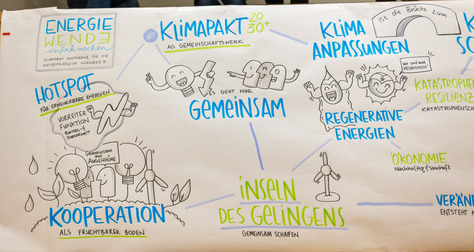 ENERGIE
WENDE
einfach machen
HOTSPOT
FÜR ERNEUERBARE ENERGIEN
VORREITER
FUNKTION
GEMEINSAM
AUF
AUGENHÖHE
KOOPERATION
ALS FRUCHTBARER BODEN
KLIMAPAKT 20
30+
ALS GEMEINSCHAFTSWERK
ES GEHT NUR
GEMEINSAM
INSELN
DES GELINGENS
GEMEINSAM SCHAFFEN
KLIMA
ANPASSUNGEN
ist die BRÜCKE zum
REGENERATIVE
ENERGIEN
KATASTROPHEN
RESILIENZ
KATASTROPHENSCH
ÖKONOMIE
Nachhaltigkeit
VERÄN
ENTSTEHT